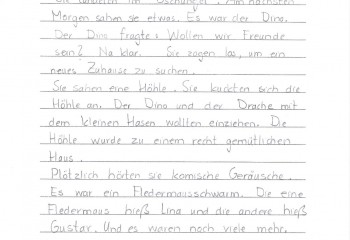 Sie wanderen im Dschungel. Am nächsten
Morgen sahen sie etwas. Es war der Dino.
Der Dino fragte: Wollen wir Freunde
sein? Na klar. Sie zogen los, um ein
neues Zuhause zu suchen.
Sie sahen eine Höhle. Sie kuckten sich die
Höhle an. Der Dino und der Drache mit
dem kleinen Hasen wollten einziehen. Die
Höhle wurde zu einem recht gemütlichen
Haus.
Plötzlich hörten sie komische Geräusche.
Es war ein Fledermausschwarm. Die eine
Fledermaus hieß Lina und die andere hieß
Gustav. Und es waren noch viele mehr.